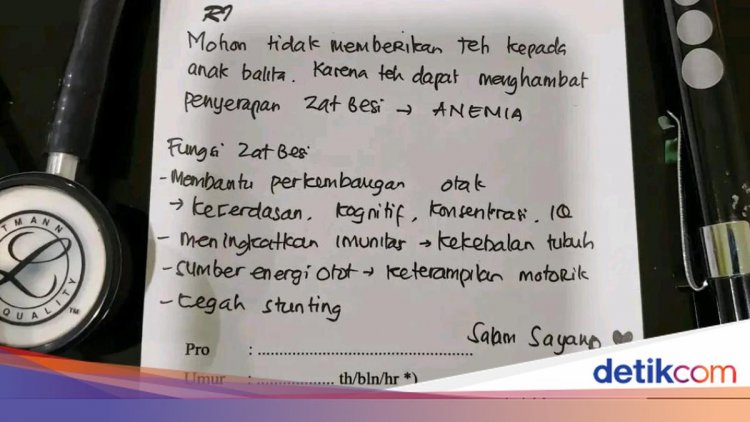 R/
Mohon tidak memberikan teh kepada
anak balita. Karena teh dapat menghambat
penyerapan Zat Besi → ANEMIA
Fungsi Zat Besi
- Membantu perkembangan otak
→ kecerdasan, kognitif, konsentrasi, IQ
- meningkatkan imunitas → kekebalan tubuh
- sumber energi otot → keterampilan motorik
- cegah stunting
Salam Sayang ♥
Pro : ........................................................
Umur : .................... th/bln/hr *)
LITTMANN
QUALITY
TM
detikcom